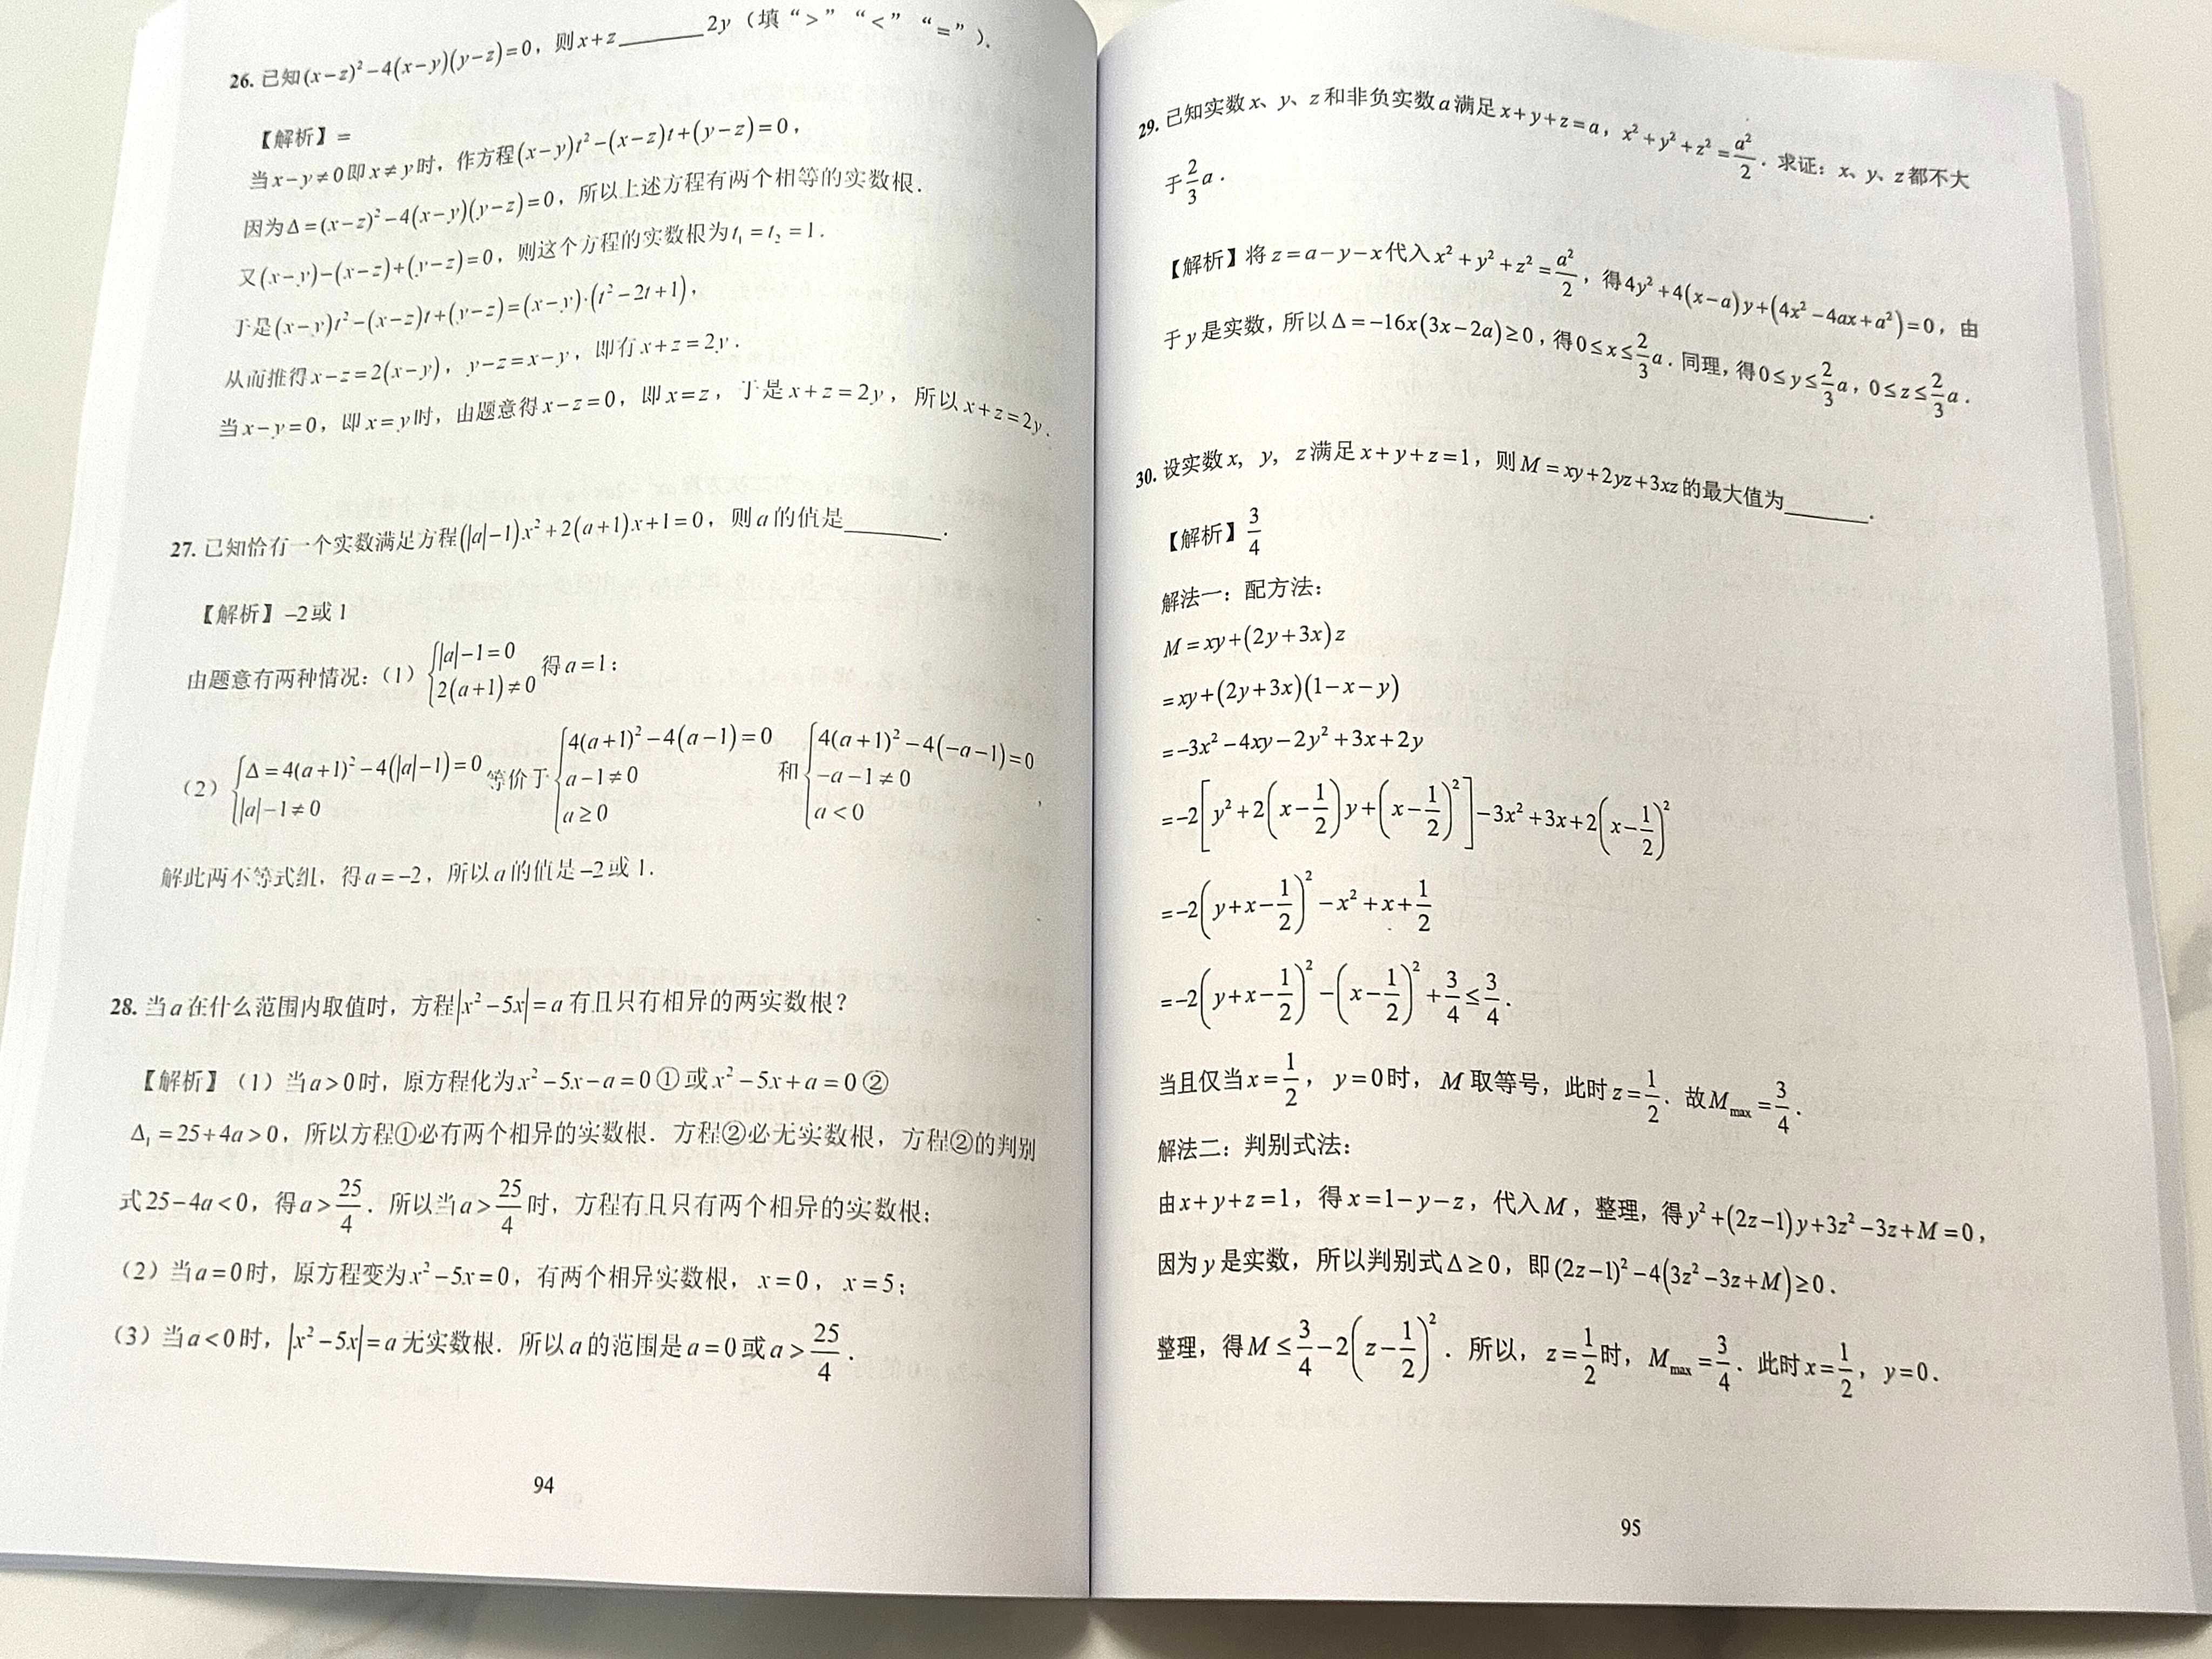 26. 已知(x−z)²−4(x−y)(y−z)=0，则x+z______2y（填“>”“<”“=”）.
【解析】=
当x−y≠0即x≠y时，作方程(x−y)t²−(x−z)t+(y−z)=0，
因为Δ=(x−z)²−4(x−y)(y−z)=0，所以上述方程有两个相等的实数根.
又(x−y)−(x−z)+(y−z)=0，则这个方程的实数根为t₁=t₂=1.
于是(x−y)t²−(x−z)t+(y−z)=(x−y)·(t²−2t+1)，
从而推得x−z=2(x−y)，y−z=x−y，即有x+z=2y.
当x−y=0，即x=y时，由题意得x−z=0，即x=z，于是x+z=2y，所以x+z=2y.
27. 已知恰有一个实数满足方程(|a|−1)x²+2(a+1)x+1=0，则a的值是______.
【解析】−2或1
由题意有两种情况：（1）{|a|−1=0 2(a+1)≠0 得a=1；
（2）{Δ=4(a+1)²−4(|a|−1)=0 |a|−1≠0 等价于{4(a+1)²−4(a−1)=0 a−1≠0 a≥0 和{4(a+1)²−4(−a−1)=0 −a−1≠0 a<0，
解此两不等式组，得a=−2，所以a的值是−2或1.
28. 当a在什么范围内取值时，方程|x²−5x|=a有且只有相异的两实数根？
【解析】（1）当a>0时，原方程化为x²−5x−a=0①或x²−5x+a=0②
Δ₁=25+4a>0，所以方程①必有两个相异的实数根．方程②必无实数根，方程②的判别
式25−4a<0，得a>25/4．所以当a>25/4时，方程有且只有两个相异的实数根；
（2）当a=0时，原方程变为x²−5x=0，有两个相异实数根，x=0，x=5；
（3）当a<0时，|x²−5x|=a无实数根．所以a的范围是a=0或a>25/4.
94
29. 已知实数x、y、z和非负实数a满足x+y+z=a，x²+y²+z²=a²/2．求证：x、y、z都不大
于2/3a.
【解析】将z=a−y−x代入x²+y²+z²=a²/2，得4y²+4(x−a)y+(4x²−4ax+a²)=0，由
于y是实数，所以Δ=−16x(3x−2a)≥0，得0≤x≤2/3a．同理，得0≤y≤2/3a，0≤z≤2/3a.
30. 设实数x，y，z满足x+y+z=1，则M=xy+2yz+3xz的最大值为______.
【解析】3/4
解法一：配方法：
M=xy+(2y+3x)z
=xy+(2y+3x)(1−x−y)
=−3x²−4xy−2y²+3x+2y
=−2[y²+2(x−1/2)y+(x−1/2)²]−3x²+3x+2(x−1/2)²
=−2(y+x−1/2)²−x²+x+1/2
=−2(y+x−1/2)²−(x−1/2)²+3/4≤3/4.
当且仅当x=1/2，y=0时，M取等号，此时z=1/2．故Mmax=3/4.
解法二：判别式法：
由x+y+z=1，得x=1−y−z，代入M，整理，得y²+(2z−1)y+3z²−3z+M=0，
因为y是实数，所以判别式Δ≥0，即(2z−1)²−4(3z²−3z+M)≥0.
整理，得M≤3/4−2(z−1/2)²．所以，z=1/2时，Mmax=3/4．此时x=1/2，y=0.
95